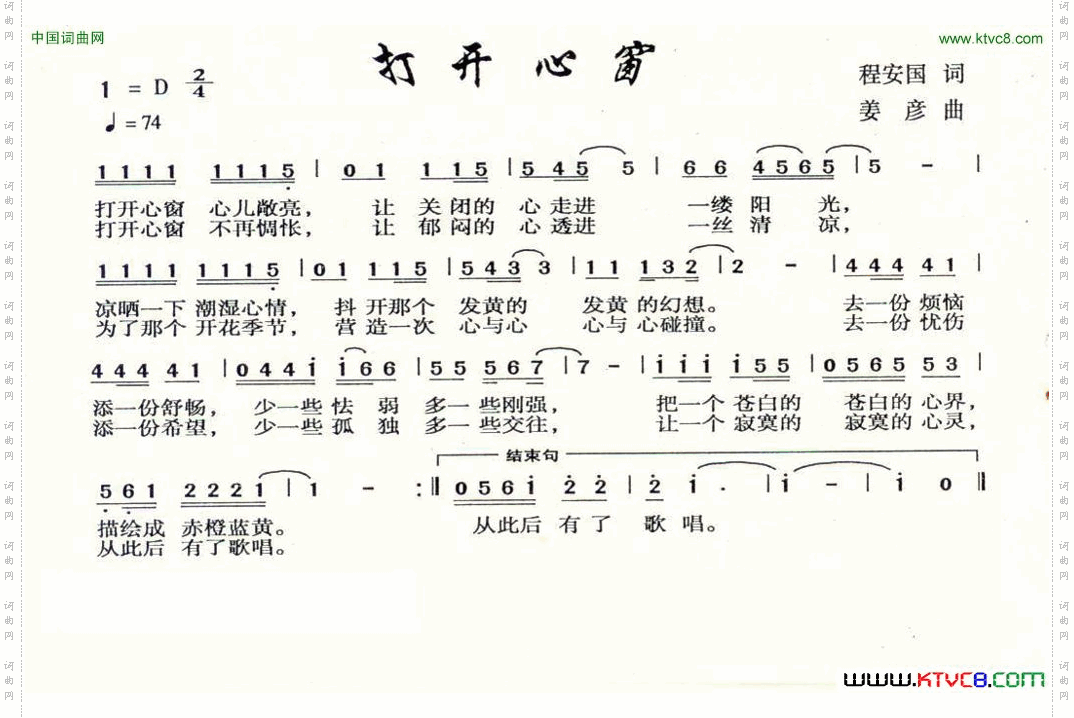 中国词曲网
www.ktvc8.com
打开心窗
1 = D 2/4
程安国 词
♩= 74
姜彦 曲
1 1 1 1 1 1 1 5 | 0 1 1 1 5 | 5 4 5 5 | 6 6 4 5 6 5 | 5 - |
打开心窗 心儿敞亮， 让 关闭的 心走进 一缕阳 光，
打开心窗 不再惆怅， 让 郁闷的 心透进 一丝清 凉，
1 1 1 1 1 1 1 5 | 0 1 1 1 5 | 5 4 3 3 | 1 1 1 3 2 | 2 - | 4 4 4 4 1 |
凉晒一下 潮湿心情， 抖开那个 发黄的 发黄的幻想。 去一份 烦恼
为了那个 开花季节， 营造一次 心与心 心与心碰撞。 去一份 忧伤
4 4 4 4 1 | 0 4 4 i i 6 6 | 5 5 5 6 7 | 7 - | i i i i 5 5 | 0 5 6 5 5 3 |
添一份舒畅， 少一些 怯 弱 多一些刚强， 把一个 苍白的 苍白的心界，
添一份希望， 少一些 孤 独 多一些交往， 让一个 寂寞的 寂寞的心灵，
结束句
5 6 1 2 2 2 1 | 1 - :‖ 0 5 6 i 2 2 | 2 i . | i - | i 0 ‖
描绘成 赤橙蓝黄。 从此后 有了 歌 唱。
从此后 有了歌唱。
www.KTVC8.com
词曲网